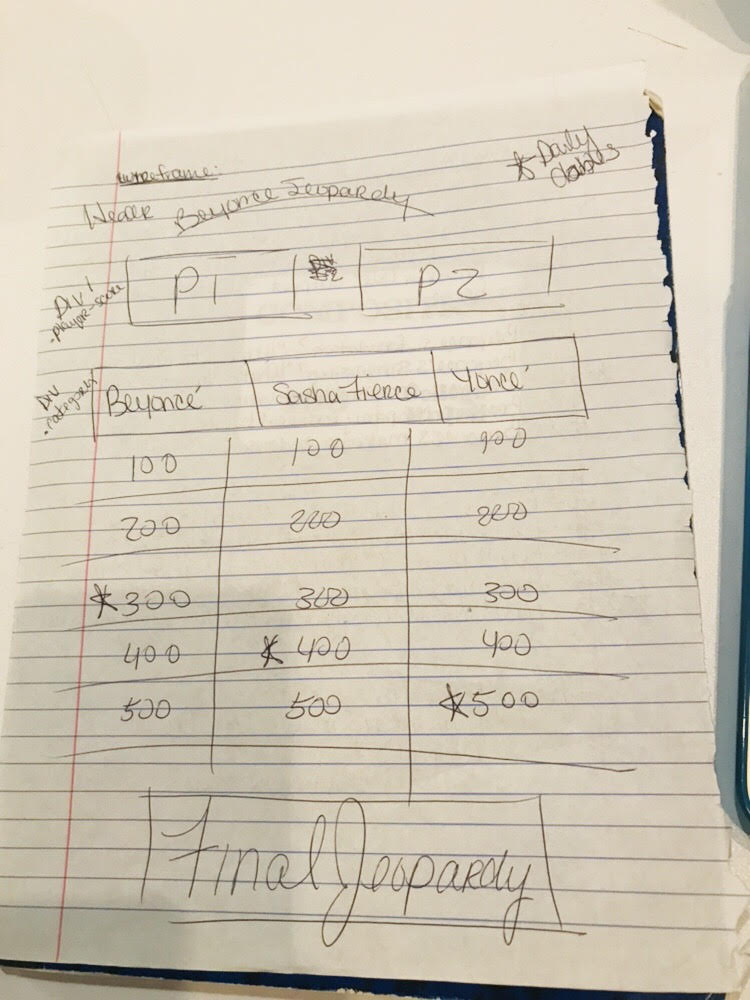 wireframe:
* Daily
doubles
Header Beyonce Jeopardy
Div 1
.player-score
P1
P2
Div
.categories
Beyoncé
Sasha Fierce
Yoncé
100 100 100
200 200 200
*300 300 300
400 *400 400
500 500 *500
Final Jeopardy